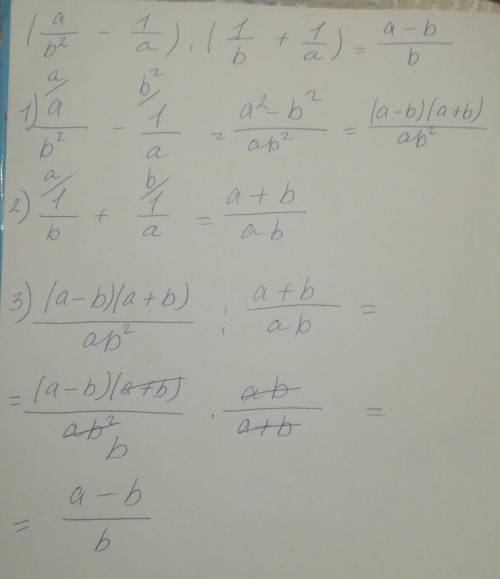 (a/b² − 1/a) : (1/b + 1/a) = (a−b)/b
1) a/b² − 1/a = (a²−b²)/(ab²) = ((a−b)(a+b))/(ab²)
2) 1/b + 1/a = (a+b)/(ab)
3) ((a−b)(a+b))/(ab²) : (a+b)/(ab) =
= ((a−b)(a+b))/(ab²) · (ab)/(a+b) =
b
= (a−b)/b